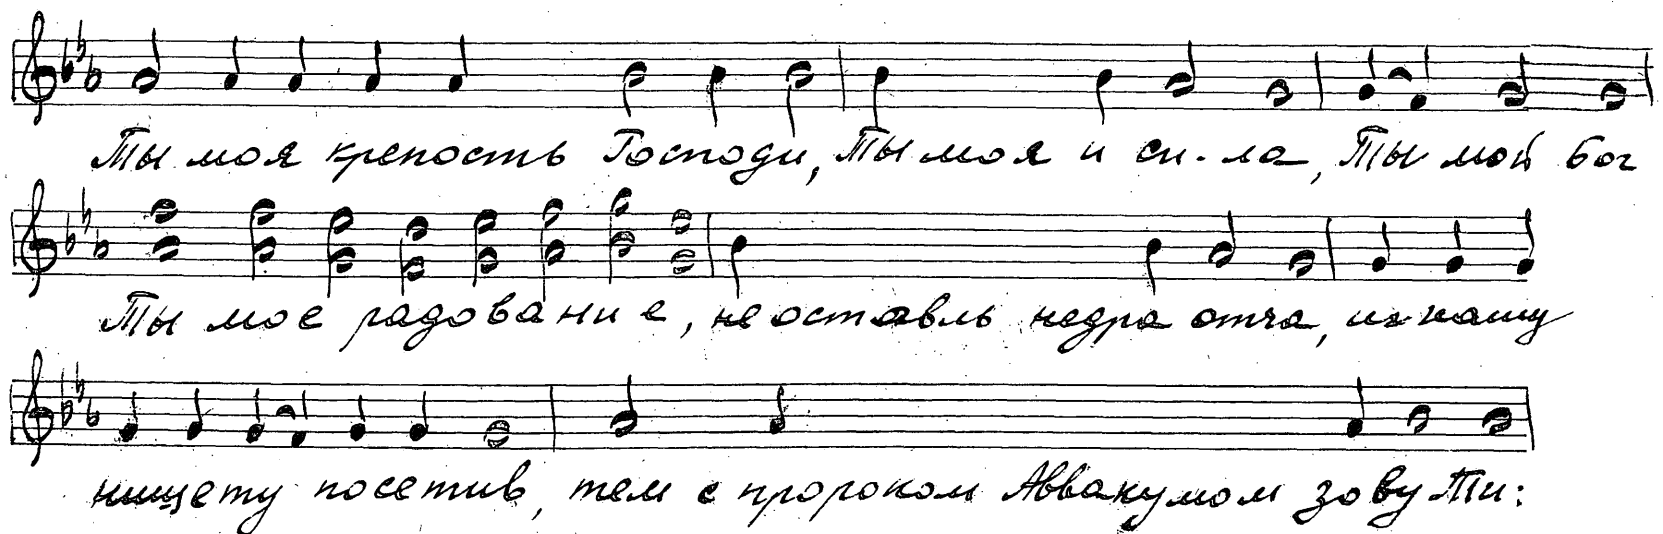 Ты моя крепость Господи, Ты моя и си-ла, Ты мой бог
Ты мое радование, не оставль недра отча, и нашу
нищету посетив, тем с пророком Аввакумом зову Ти: